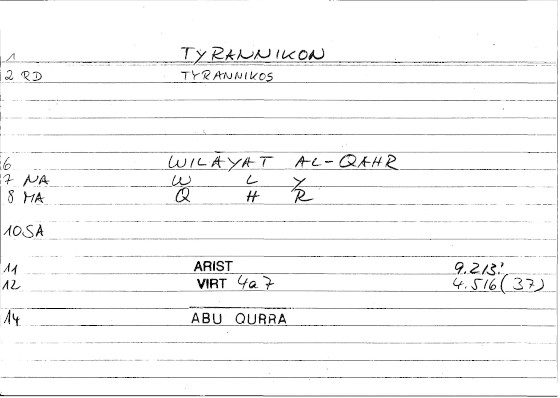 1 TYRANNIKON
2 RD TYRANNIKOS
6 WILĀYAT AL-QAHR
7 NA W L Y
8 MA Q H R
10 SA
11 ARIST 9.213!
12 VIRT 4a7 4.516(37)
14 ABU QURRA